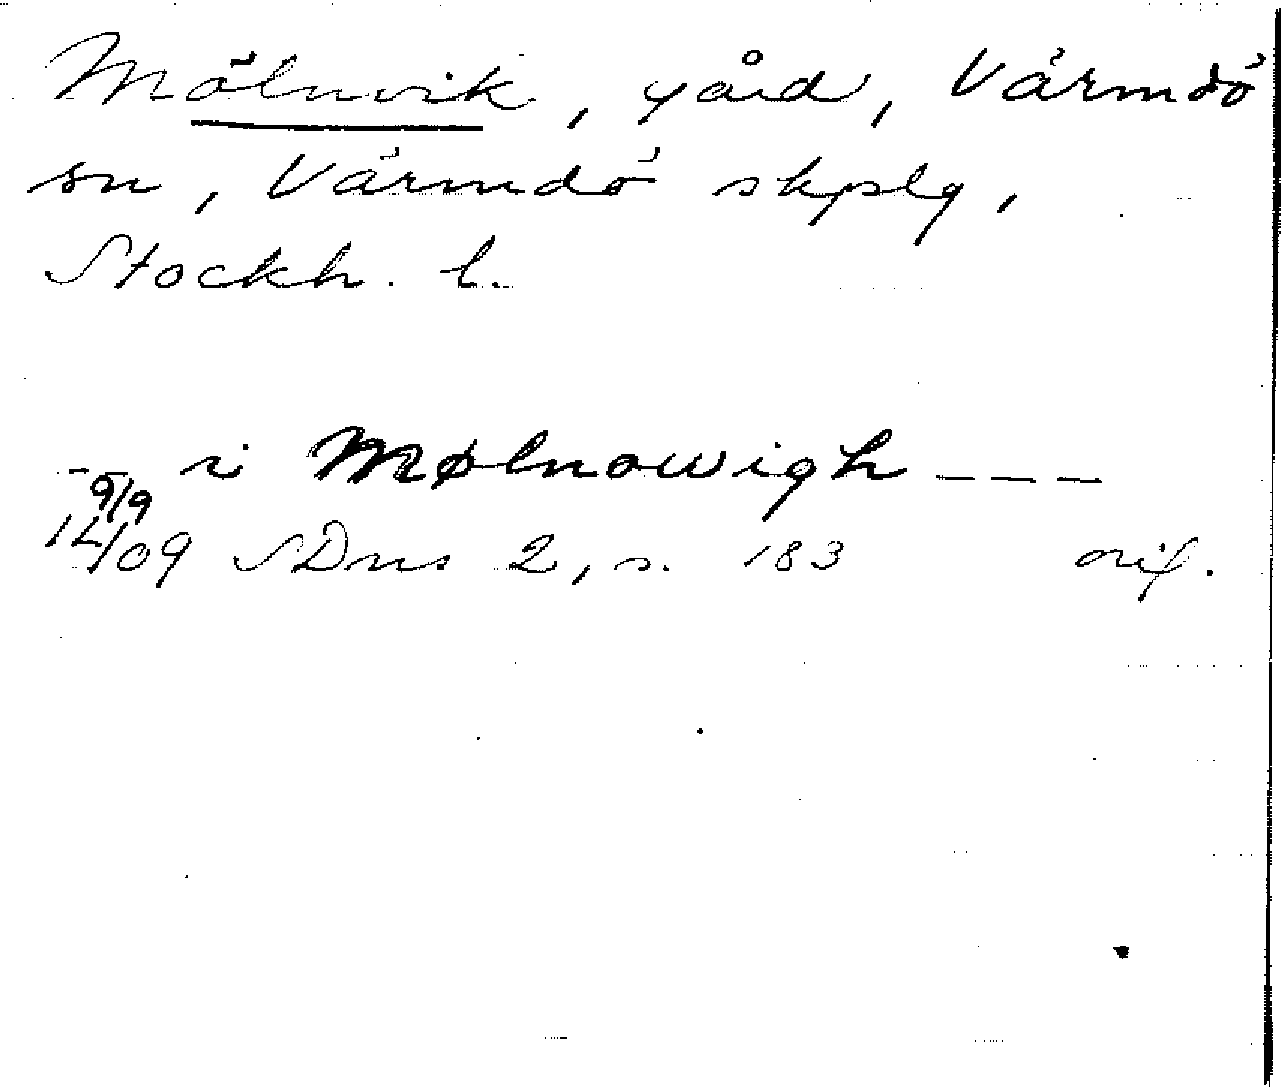 Mölnvik, gård, Värmdö
sn, Värmdö skpslg,
Stockh. l.
- - i Mølnowigh - - -
9/9
14/09 SDns 2, s. 183 orig.